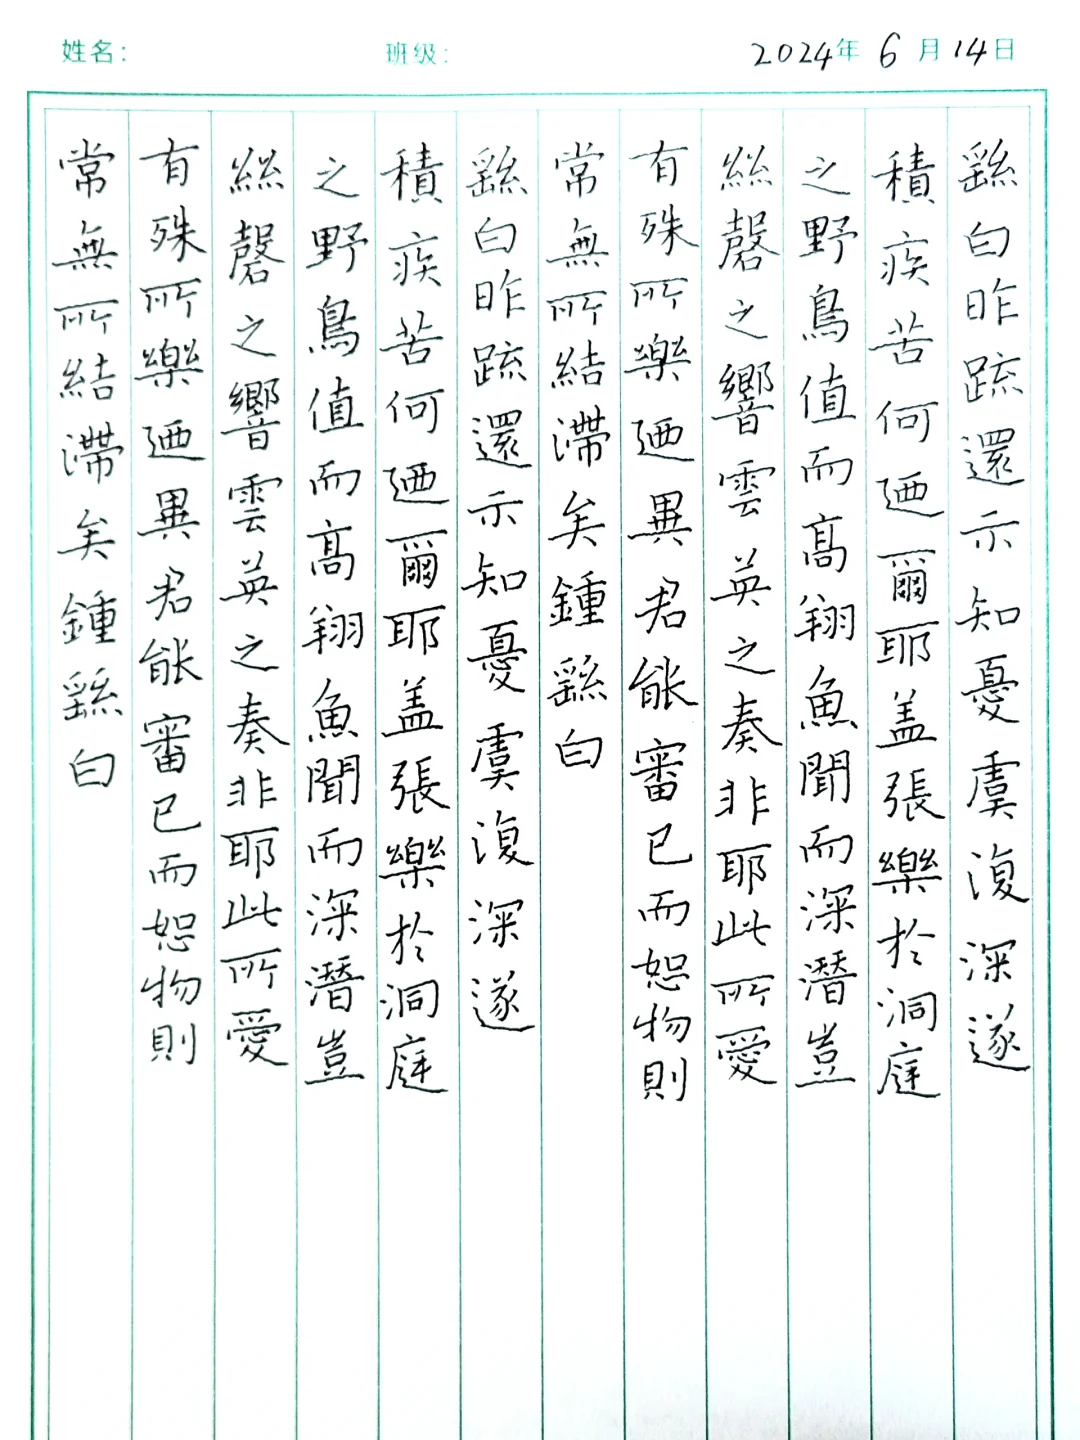 姓名： 班级： 2024年6月14日
繇白昨疏還示知憂虞復深遂
積疾苦何迺爾耶盖張樂於洞庭
之野鳥值而高翔魚聞而深潛豈
絲磬之響雲英之奏非耶此所愛
有殊所樂迺異君能審已而恕物則
常無所結滯矣鍾繇白
繇白昨疏還示知憂虞復深遂
積疾苦何迺爾耶盖張樂於洞庭
之野鳥值而高翔魚聞而深潛豈
絲磬之響雲英之奏非耶此所愛
有殊所樂迺異君能審已而恕物則
常無所結滯矣鍾繇白